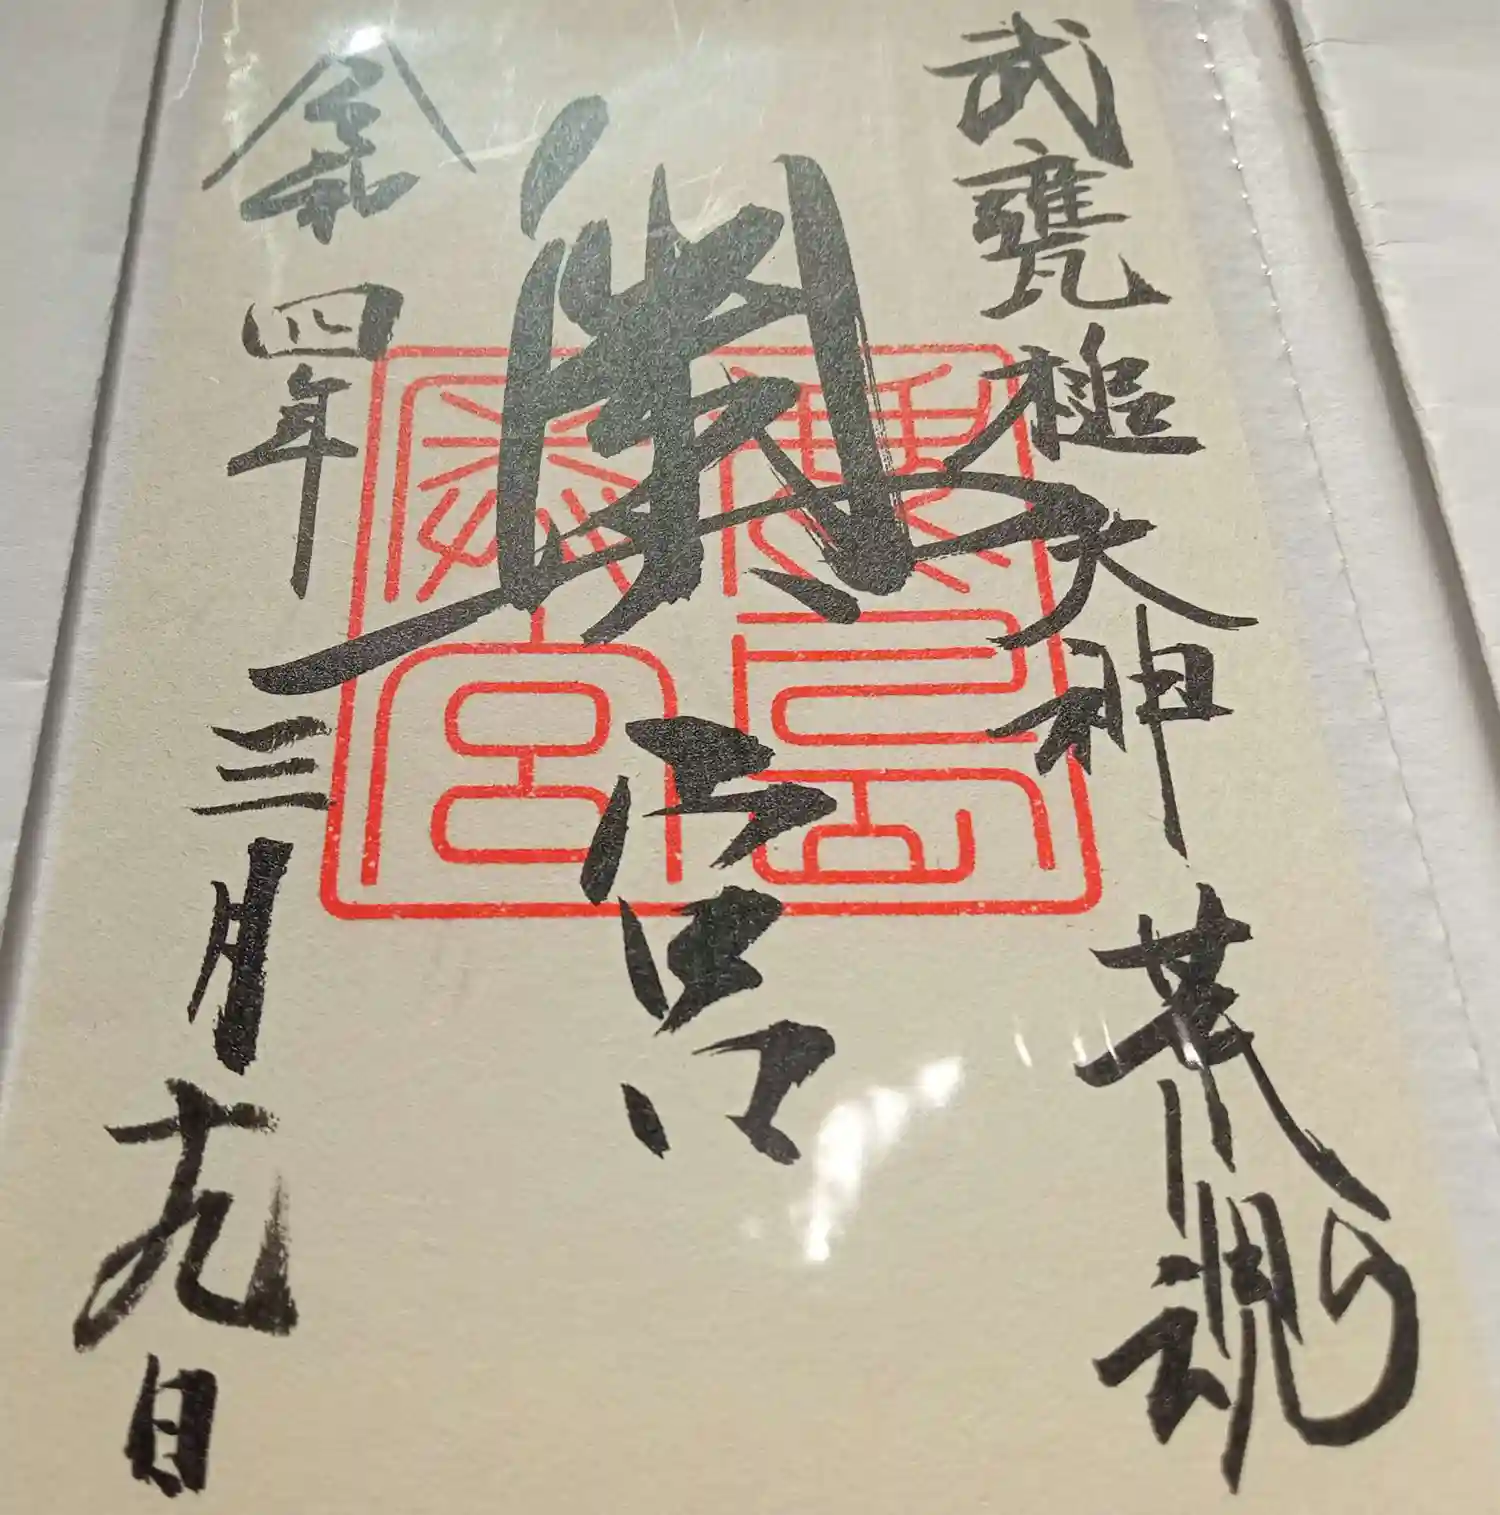 武甕槌大神荒魂
奥宮
鹿島
奥宮
令和四年三月十九日